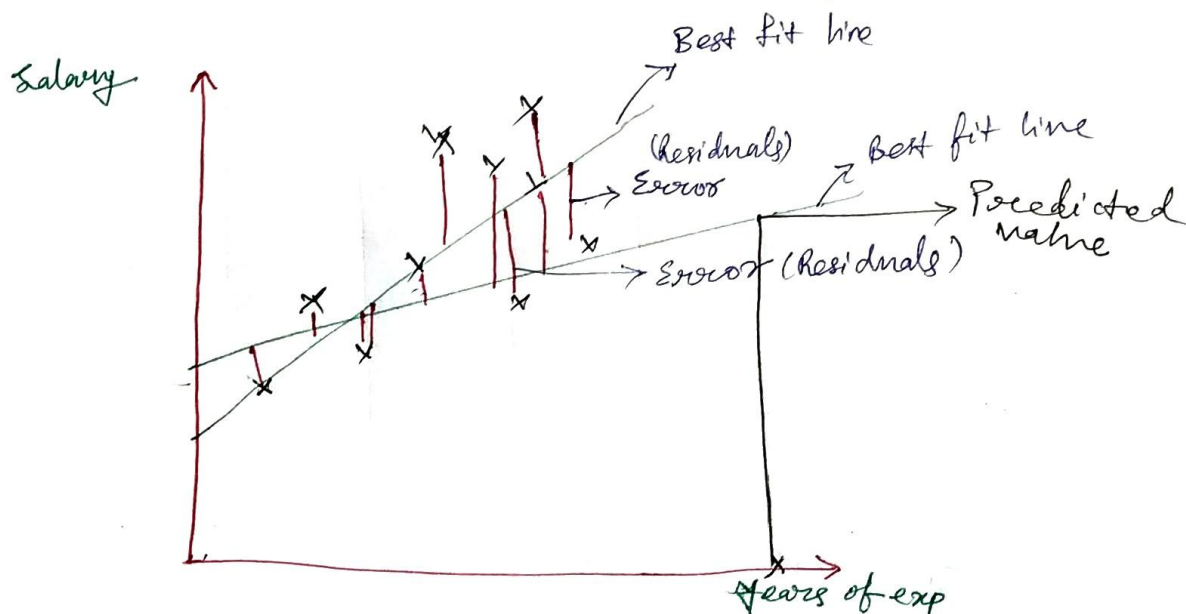 Best fit line
Salary
(Residuals)
Error
Best fit line
Predicted
value
Error (Residuals)
Years of exp